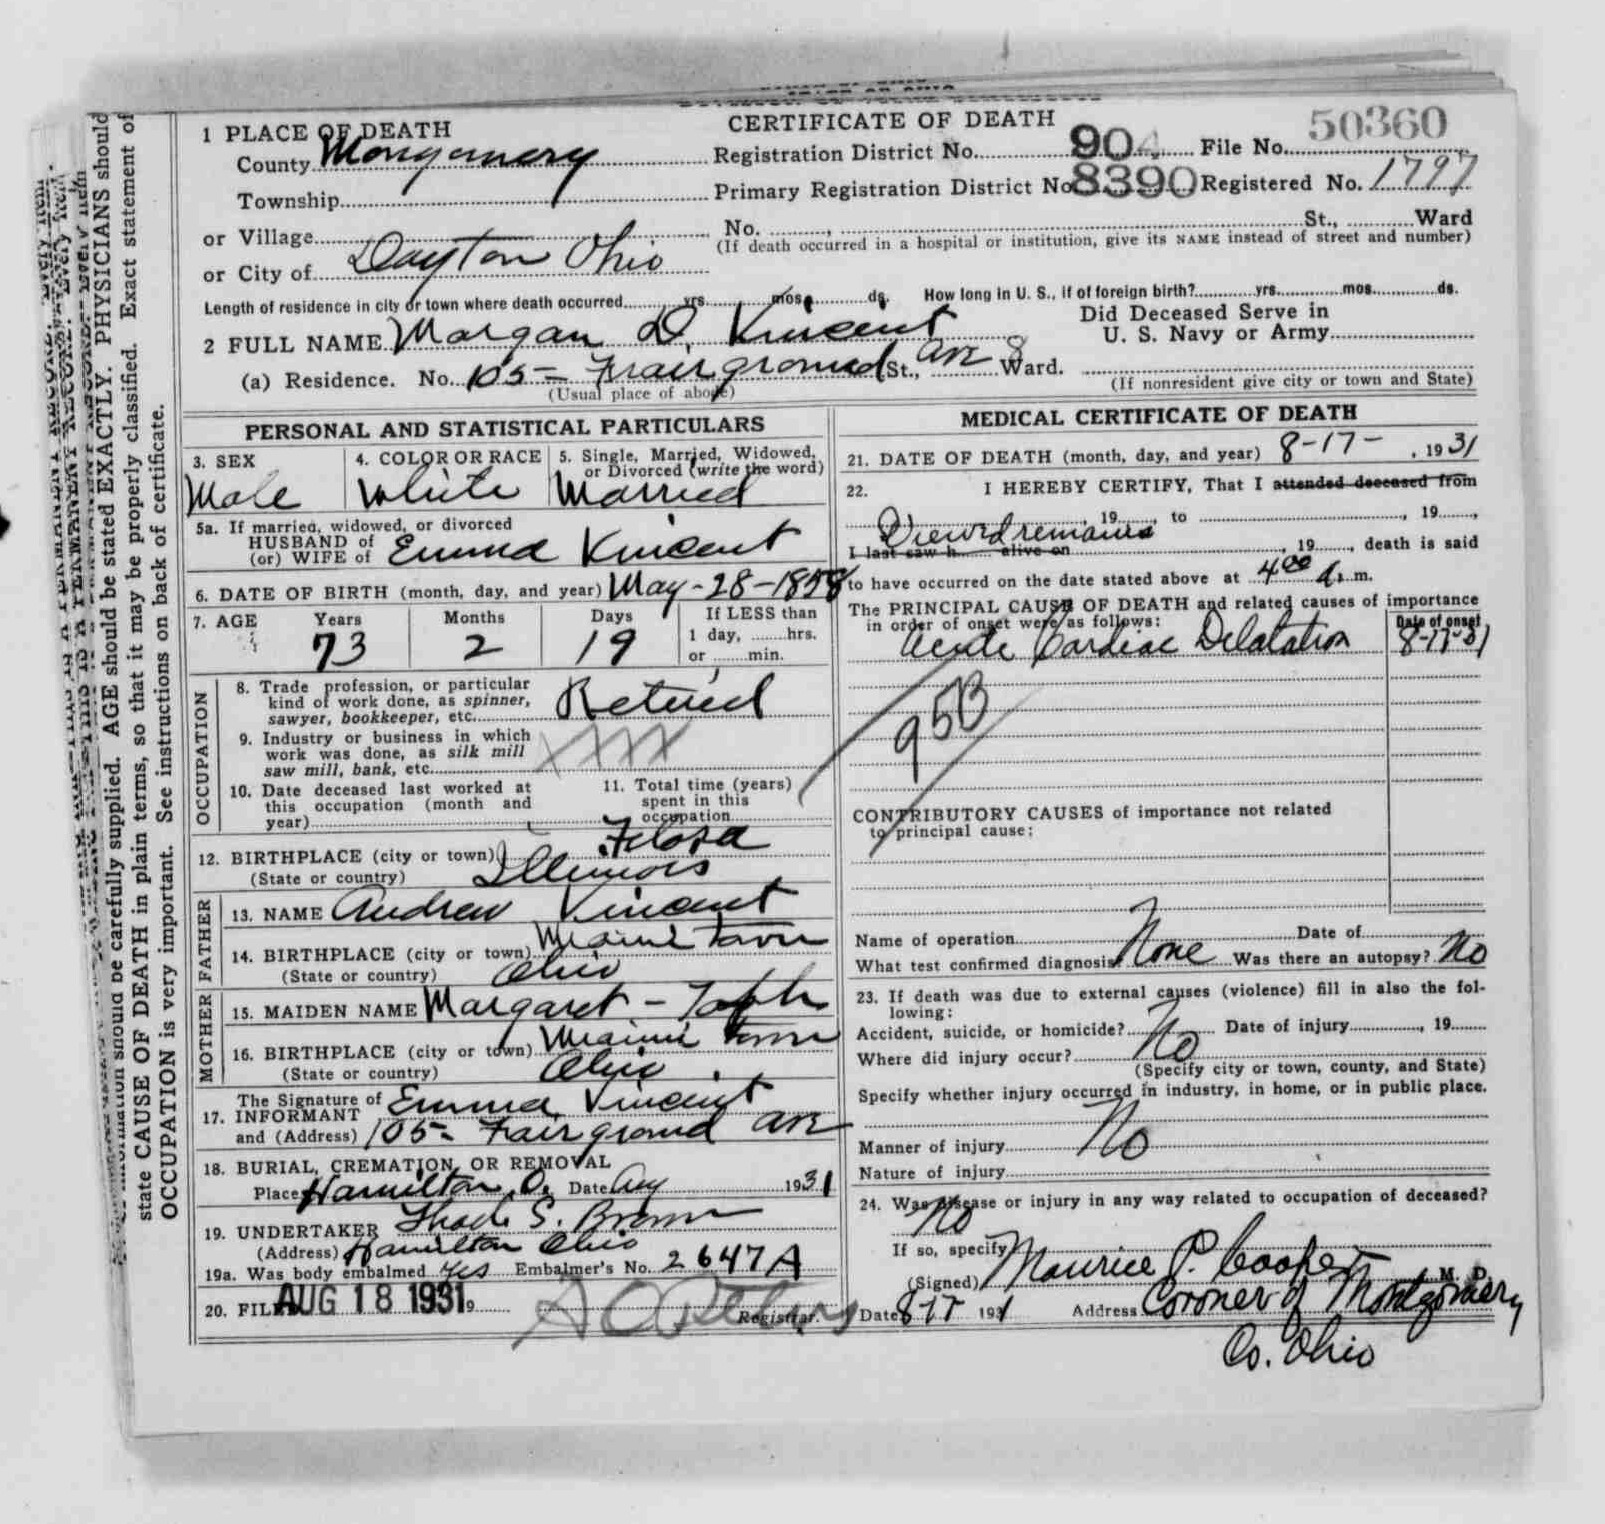 CERTIFICATE OF DEATH
1 PLACE OF DEATH
County Montgomery
Registration District No. 904 File No. 50360
Township
Primary Registration District No. 8390 Registered No. 1797
or Village
No. , St., Ward
(If death occurred in a hospital or institution, give its NAME instead of street and number)
or City of Dayton Ohio
Length of residence in city or town where death occurred yrs. mos. ds. How long in U. S., if of foreign birth? yrs. mos. ds.
2 FULL NAME Morgan D. Vincent
Did Deceased Serve in
U. S. Navy or Army
(a) Residence. No. 105 - Fairground St., ave 8 Ward.
(Usual place of abode)
(If nonresident give city or town and State)
PERSONAL AND STATISTICAL PARTICULARS
3. SEX
Male
4. COLOR OR RACE
White
5. Single, Married, Widowed,
or Divorced (write the word)
Married
5a. If married, widowed, or divorced
HUSBAND of
(or) WIFE of Emma Vincent
6. DATE OF BIRTH (month, day, and year) May-28-1858
7. AGE Years Months Days If LESS than
73 2 19 1 day, hrs.
or min.
OCCUPATION
8. Trade profession, or particular
kind of work done, as spinner,
sawyer, bookkeeper, etc. Retired
9. Industry or business in which
work was done, as silk mill
saw mill, bank, etc. XXX
10. Date deceased last worked at
this occupation (month and
year)
11. Total time (years)
spent in this
occupation
12. BIRTHPLACE (city or town)
(State or country) Illinois
FATHER
13. NAME Andrew Vincent
14. BIRTHPLACE (city or town) Miami Town
(State or country) Ohio
MOTHER
15. MAIDEN NAME Margaret -
16. BIRTHPLACE (city or town) Miami Town
(State or country) Ohio
17. The Signature of
INFORMANT Emma Vincent
and (Address) 105 - Fairground ave
18. BURIAL, CREMATION, OR REMOVAL
Place Hamilton, O. Date Aug 1931
19. UNDERTAKER S. Brown
(Address) Hamilton Ohio
19a. Was body embalmed Yes Embalmer's No. 2647A
20. FILED AUG 18 1931 19
Registrar.
MEDICAL CERTIFICATE OF DEATH
21. DATE OF DEATH (month, day, and year) 8-17- , 1931
22. I HEREBY CERTIFY, That I attended deceased from
, 19 , to , 19 ,
Viewed remains
I last saw h alive on , 19 , death is said
to have occurred on the date stated above at 4:00 a. m.
The PRINCIPAL CAUSE OF DEATH and related causes of importance
in order of onset were as follows:
Date of onset
Acute Cardiac Delatation 8-17-31
95B
CONTRIBUTORY CAUSES of importance not related
to principal cause:
Name of operation Date of
What test confirmed diagnosis? None Was there an autopsy? No
23. If death was due to external causes (violence) fill in also the fol-
lowing:
Accident, suicide, or homicide? No Date of injury , 19
Where did injury occur?
(Specify city or town, county, and State)
Specify whether injury occurred in industry, in home, or in public place.
Manner of injury No
Nature of injury
24. Was disease or injury in any way related to occupation of deceased?
No
If so, specify
(Signed) Maurice P. Cooper M. D.
Date 8-17 1931 Address Coroner of Montgomery
Co. Ohio
information should be carefully supplied. AGE should be stated EXACTLY. PHYSICIANS should
state CAUSE OF DEATH in plain terms, so that it may be properly classified. Exact statement of
OCCUPATION is very important. See instructions on back of certificate.